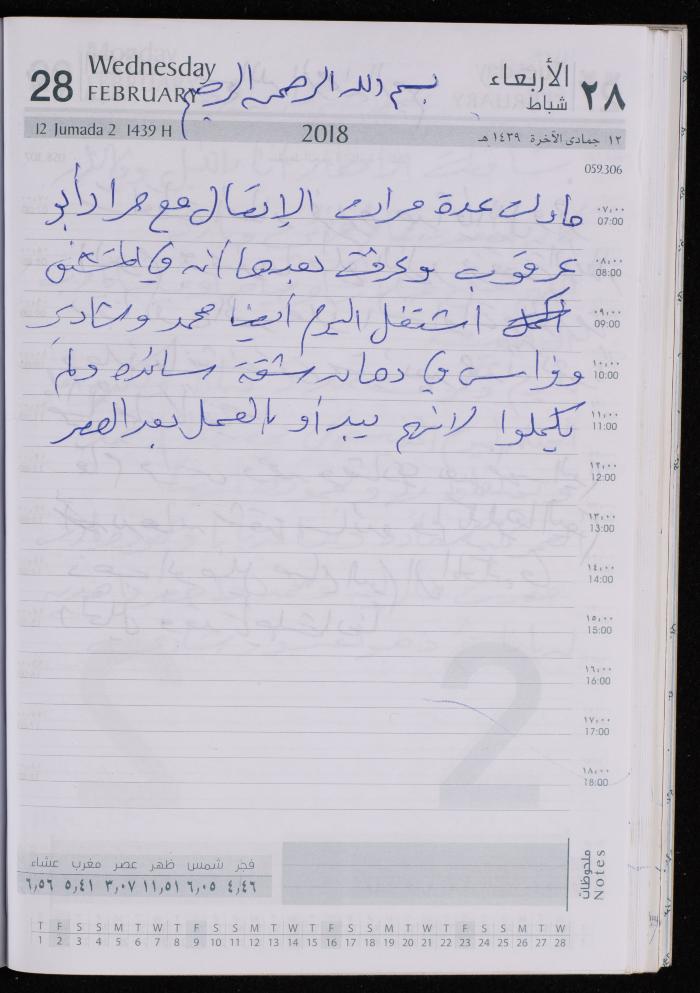 28 Wednesday FEBRUARY بسم الله الرحمن الرحيم الأربعاء شباط ٢٨
12 Jumada 2 1439 H 2018 ١٢ جمادى الآخرة ١٤٣٩ هـ
059.306
٠٧,٠٠ 07:00 حاولت عدة مرات الإتصال مع مراد أبو
٠٨,٠٠ 08:00 عرقوب وعرفت بعدها أنه في المستشفى
٠٩,٠٠ 09:00 اشتغل اليوم أيضا محمد وشادي
١٠,٠٠ 10:00 وفراس في دهان شقة سائده ولم
١١,٠٠ 11:00 يكملوا لانهم يبدأو بالعمل بعد العصر
١٢,٠٠ 12:00
١٣,٠٠ 13:00
١٤,٠٠ 14:00
١٥,٠٠ 15:00
١٦,٠٠ 16:00
١٧,٠٠ 17:00
١٨,٠٠ 18:00
2
ملحوظات Notes
فجر شمس ظهر عصر مغرب عشاء
٤,٤٦ ٦,٠٥ ١١,٥١ ٣,٠٧ ٥,٤١ ٦,٥٦
T F S S M T W T F S S M T W T F S S M T W T F S S M T W
1 2 3 4 5 6 7 8 9 10 11 12 13 14 15 16 17 18 19 20 21 22 23 24 25 26 27 28